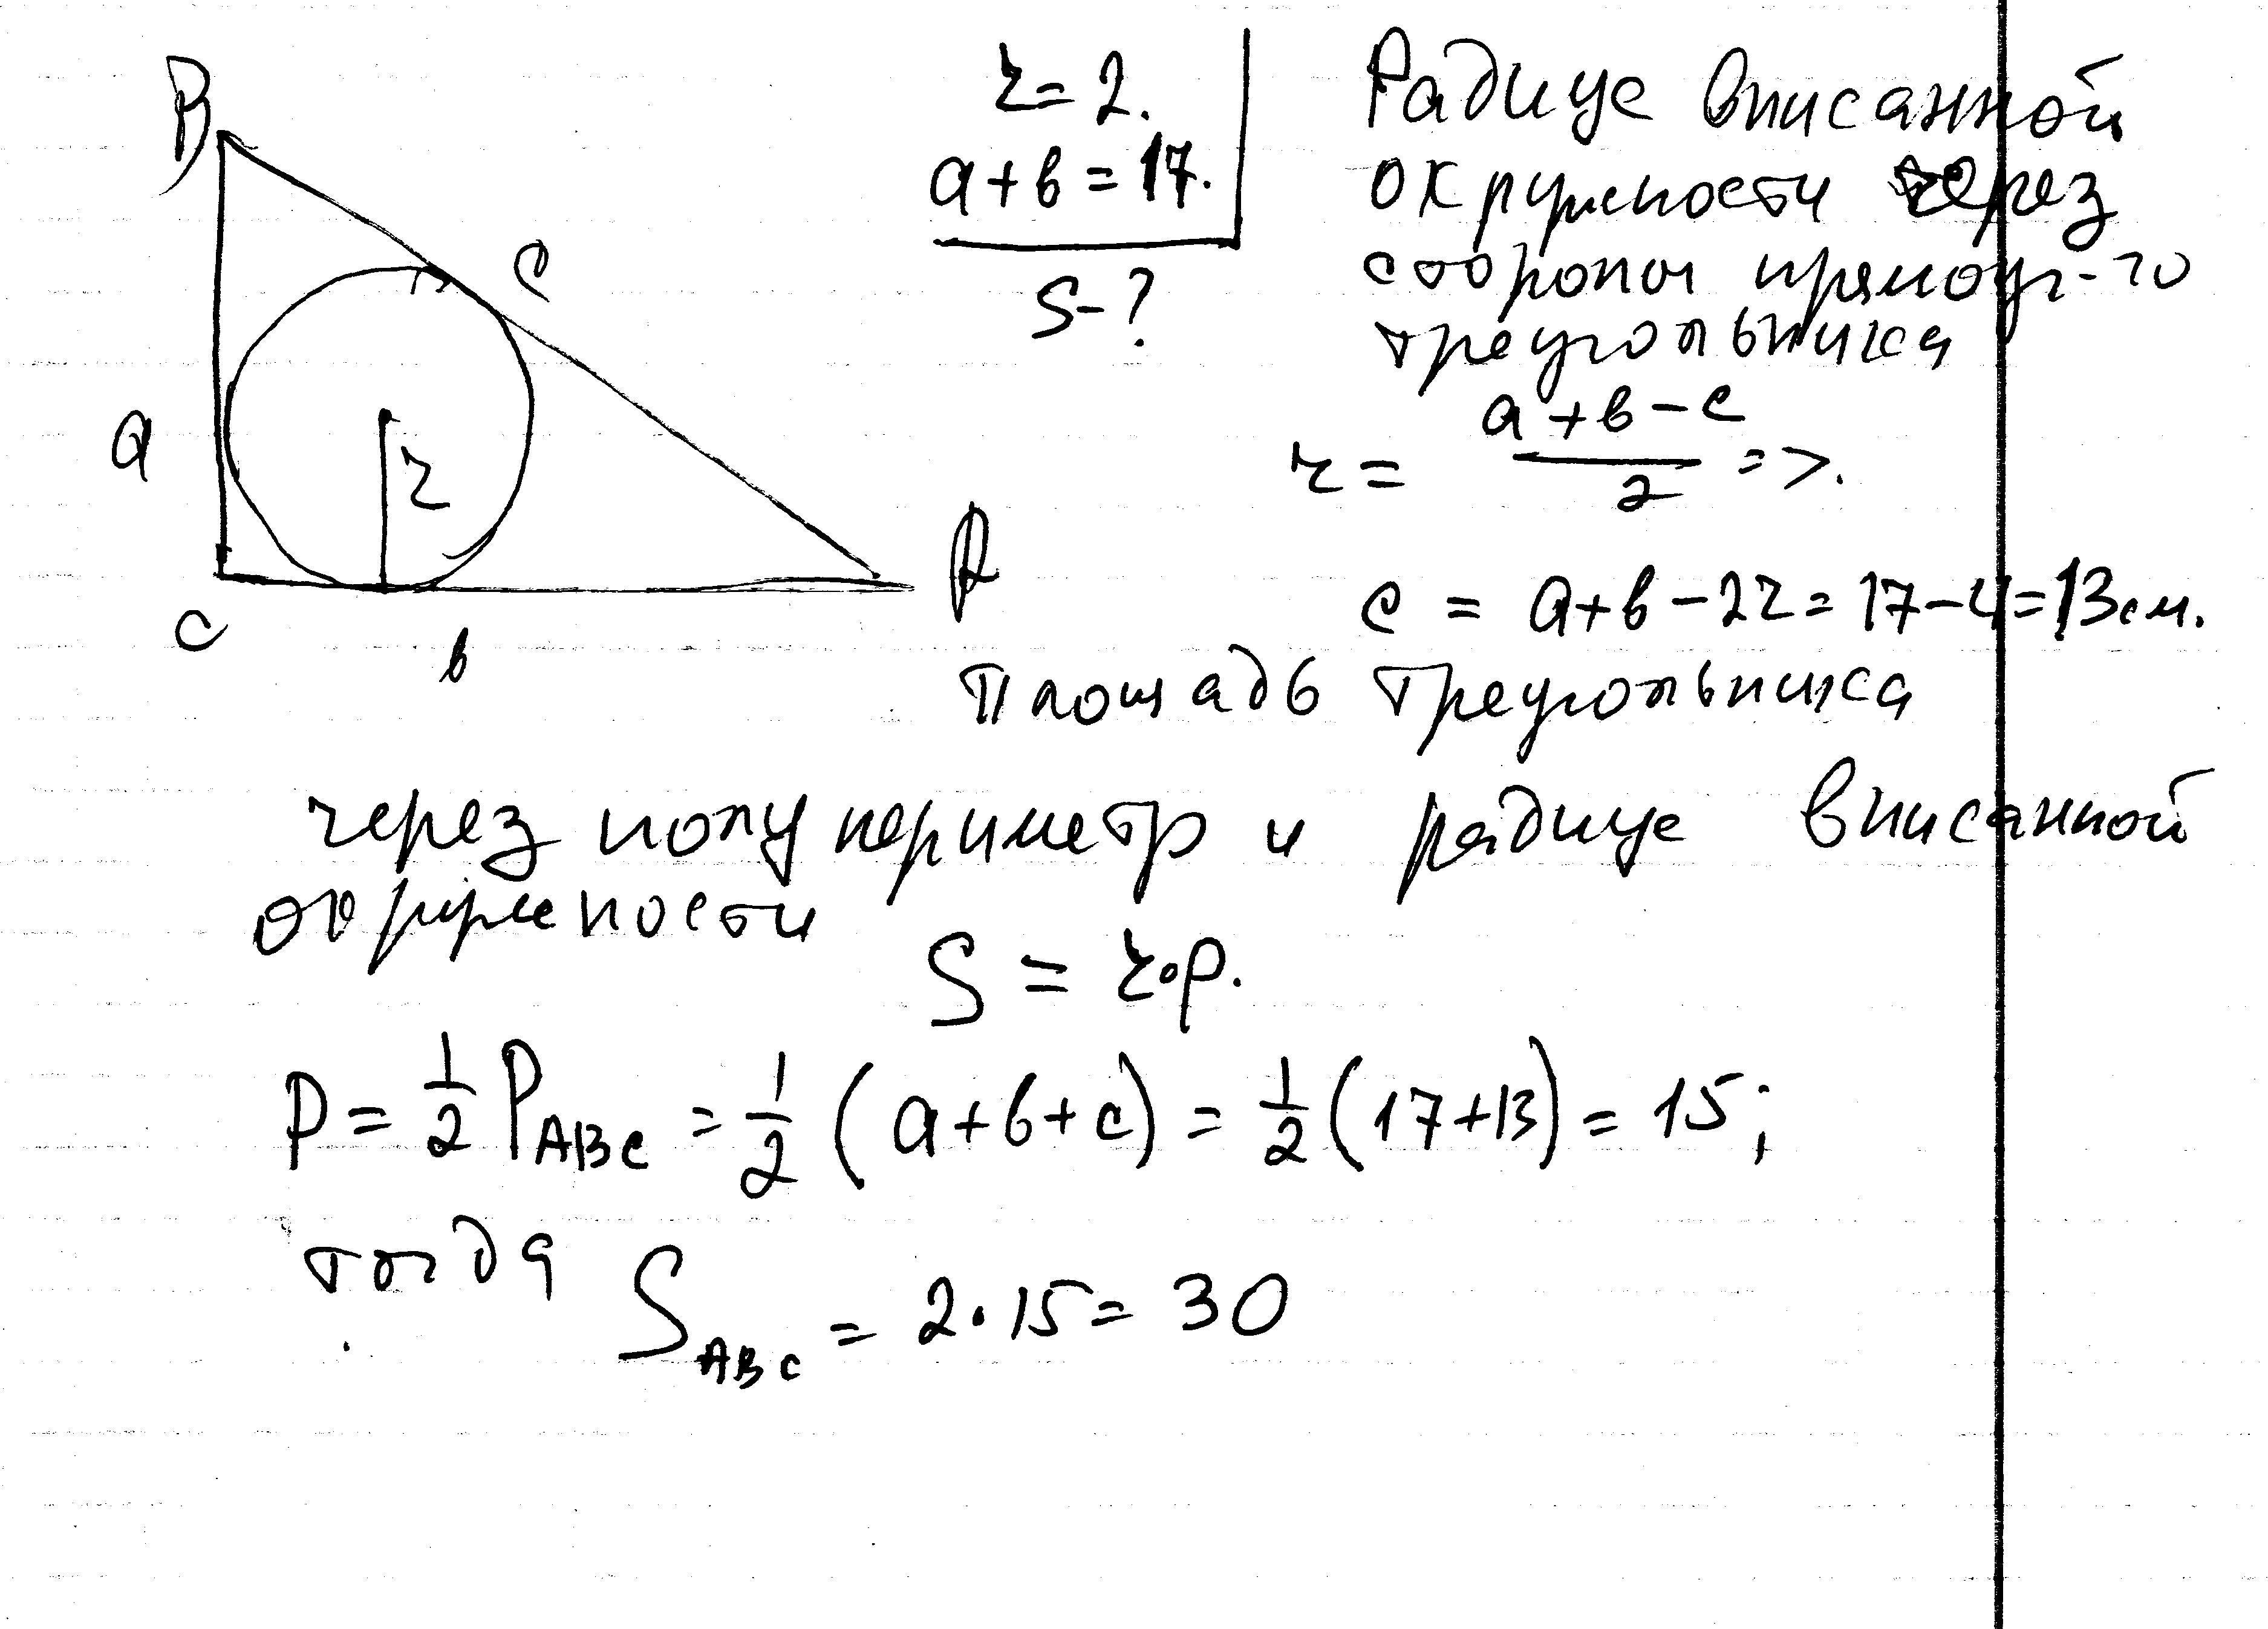 B
c
a
r
C
b
A
r = 2.
a + b = 17.
S - ?
Радиус вписанной
окружности через
стороны прямоуг-го
треугольника
r = (a + b - c)/2 =>.
c = a + b - 2r = 17 - 4 = 13 см.
Площадь треугольника
через полупериметр и радиус вписанной
окружности
S = r∘p.
P = 1/2 P_ABC = 1/2 (a + b + c) = 1/2 (17 + 13) = 15;
тогда
S_ABC = 2 · 15 = 30